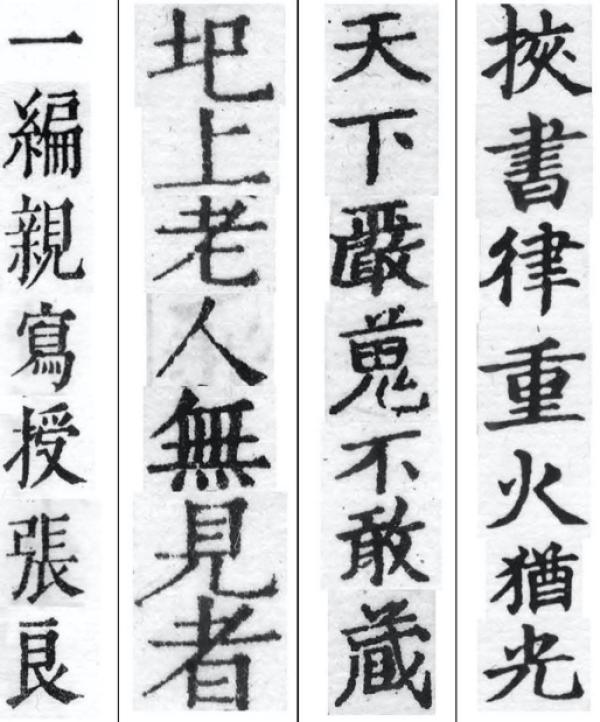 挾書律重火猶光
天下嚴蒐不敢蔵
圯上老人無見者
一編親寫授張良